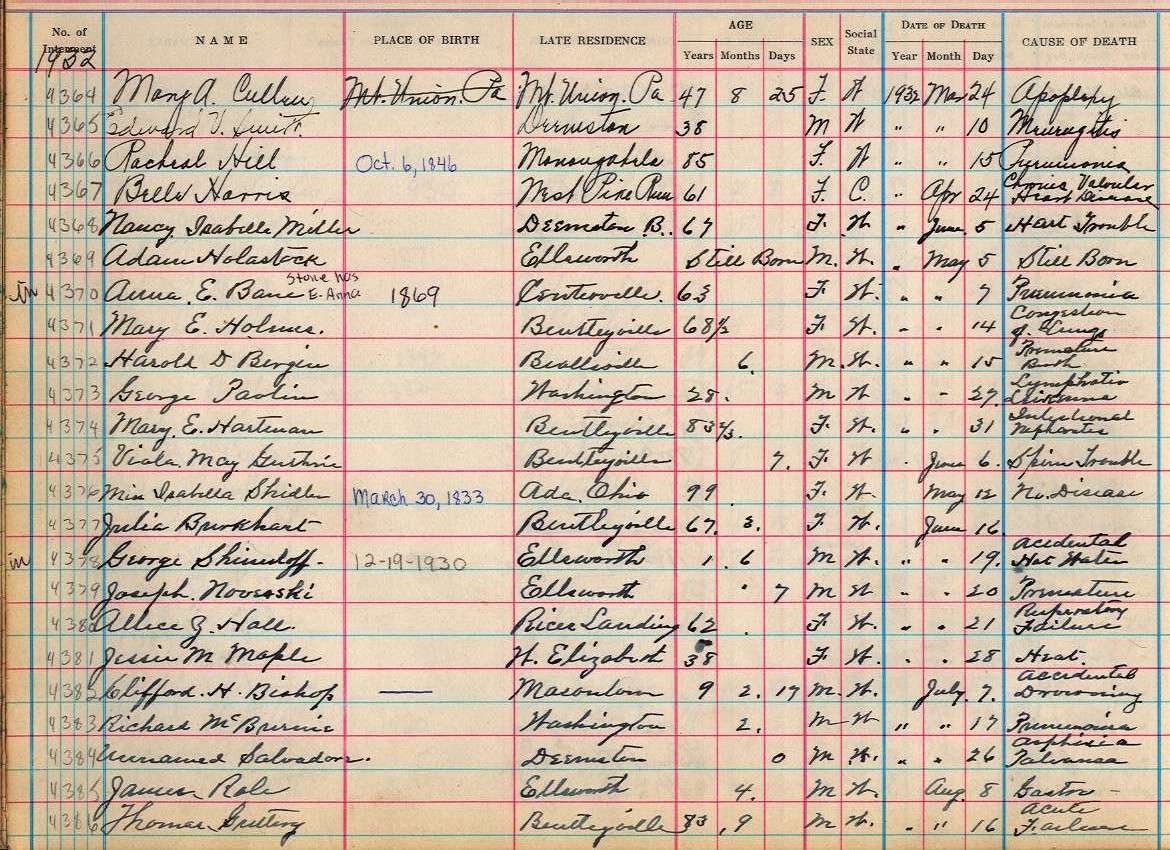 No. of Interment NAME PLACE OF BIRTH LATE RESIDENCE AGE SEX Social State DATE OF DEATH CAUSE OF DEATH
Years Months Days Year Month Day
1932
4364 Mary A. Cullen Mt. Union. Pa Mt. Union. Pa 47 8 25 F. W 1932 Mar 24 Apoplexy
4365 Edward T. Smith. Deemston 38 M W " " 10
4366 Racheal Hill Oct. 6, 1846 Monongahela 85 F. W " " 15 Pneumonia
4367 Belle Harris West Pike Run 61 F. C. " Apr 24 Chronic Valvular Heart Disease
4368 Nancy Isabelle Miller Deemston B. 67 F. W. " June 5 Hart Trouble
4369 Adam Holastock Ellsworth Still Born M. W. " May 5 Still Born
in 4370 Anna E. Bane Stone has E. Anna 1869 Centerville. 63 F. W. " " 7 Pneumonia
4371 Mary E. Holmes. Bentleyville 68 1/2 F. W. " " 14 Congestion of Lungs
4372 Harold D Bergin Beallsville 6. M. W. " " 15 Premature Birth
4373 George Paolin Washington 28. M W. " " 27
4374 Mary. E. Hartman Bentleyville 83 F. W. " " 31
4375 Viola. May Guthrie Bentleyville 7. F. W. " June 6. Spine Trouble
4376 Miss Isabella Shidler March 30, 1833 Ada. Ohio 99 F. W. May 12 No. Disease
4377 Julia Burkhart Bentleyville 67. 3. F. W. June 16.
in 4378 George Shimdoff. 12-19-1930 Ellsworth 1. 6 M W. " " 19. Acidental Hot Water
4379 Joseph. Novesski Ellsworth 7 M W " " 20 Premature
4380 Allice Z. Hall. Rices Landing 62 F. W. " " 21 Respiratory Failure
4381 Jessie M Maple W. Elizabeth 38 F W. " " 28 Heat.
4382 Clifford. H. Bishop — Masontown 9 2. 17 M. W. July 7. Accidental Drowning
4383 Richard McBurnie Washington 2. M W " " 17 Pneumonia
4384 Unnamed Salvadore. Deemston 0 M W. " " 26
4385 James Role Ellsworth 4. M W. Aug 8 Gastro -
4386 Thomas Bentleyville 83. 9 M W. " " 16 Acute Failure